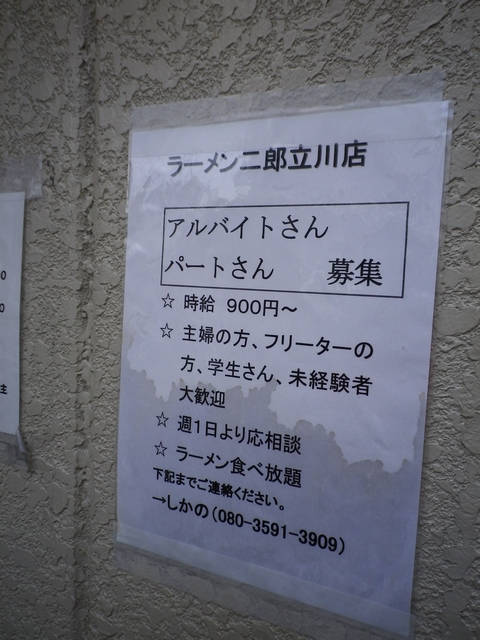 ラーメン二郎立川店
アルバイトさん
パートさん 募集
☆ 時給 900円～
☆ 主婦の方、フリーターの
方、学生さん、未経験者
大歓迎
☆ 週1日より応相談
☆ ラーメン食べ放題
下記までご連絡ください。
→しかの(080-3591-3909)
0
0
主